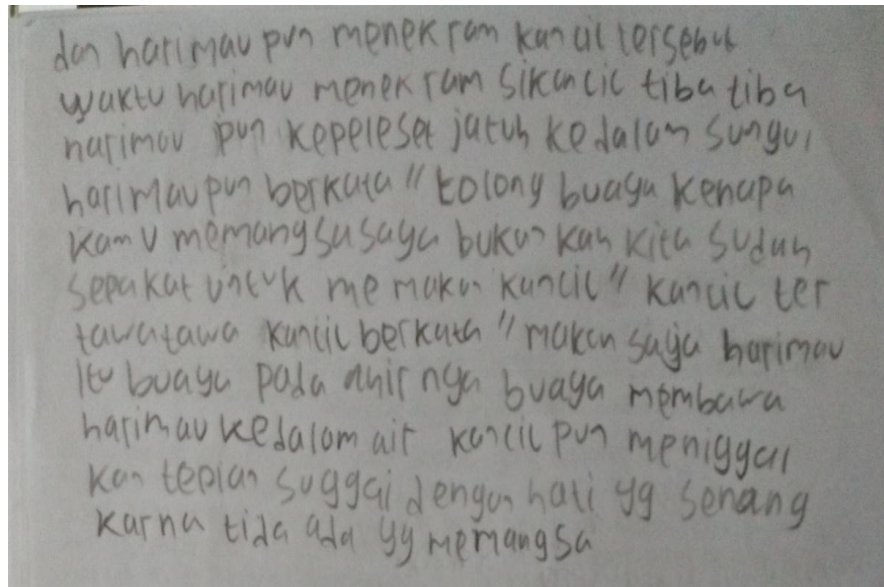 dan harimau pun menekram kancil tersebut
waktu harimau menekram sikancil tiba tiba
harimau pun kepeleset jatuh kedalam sungai
harimau pun berkata "tolong buaya kenapa
kamu memangsa saya bukan kah kita sudah
sepakat untuk memakan kancil" kancil ter
tawatawa kancil berkata "makan saja harimau
itu buaya pada ahir nya buaya membawa
harimau kedalam air kancil pun meniggal
kan tepian suggai dengan hati yg senang
karna tida ada yg memangsa